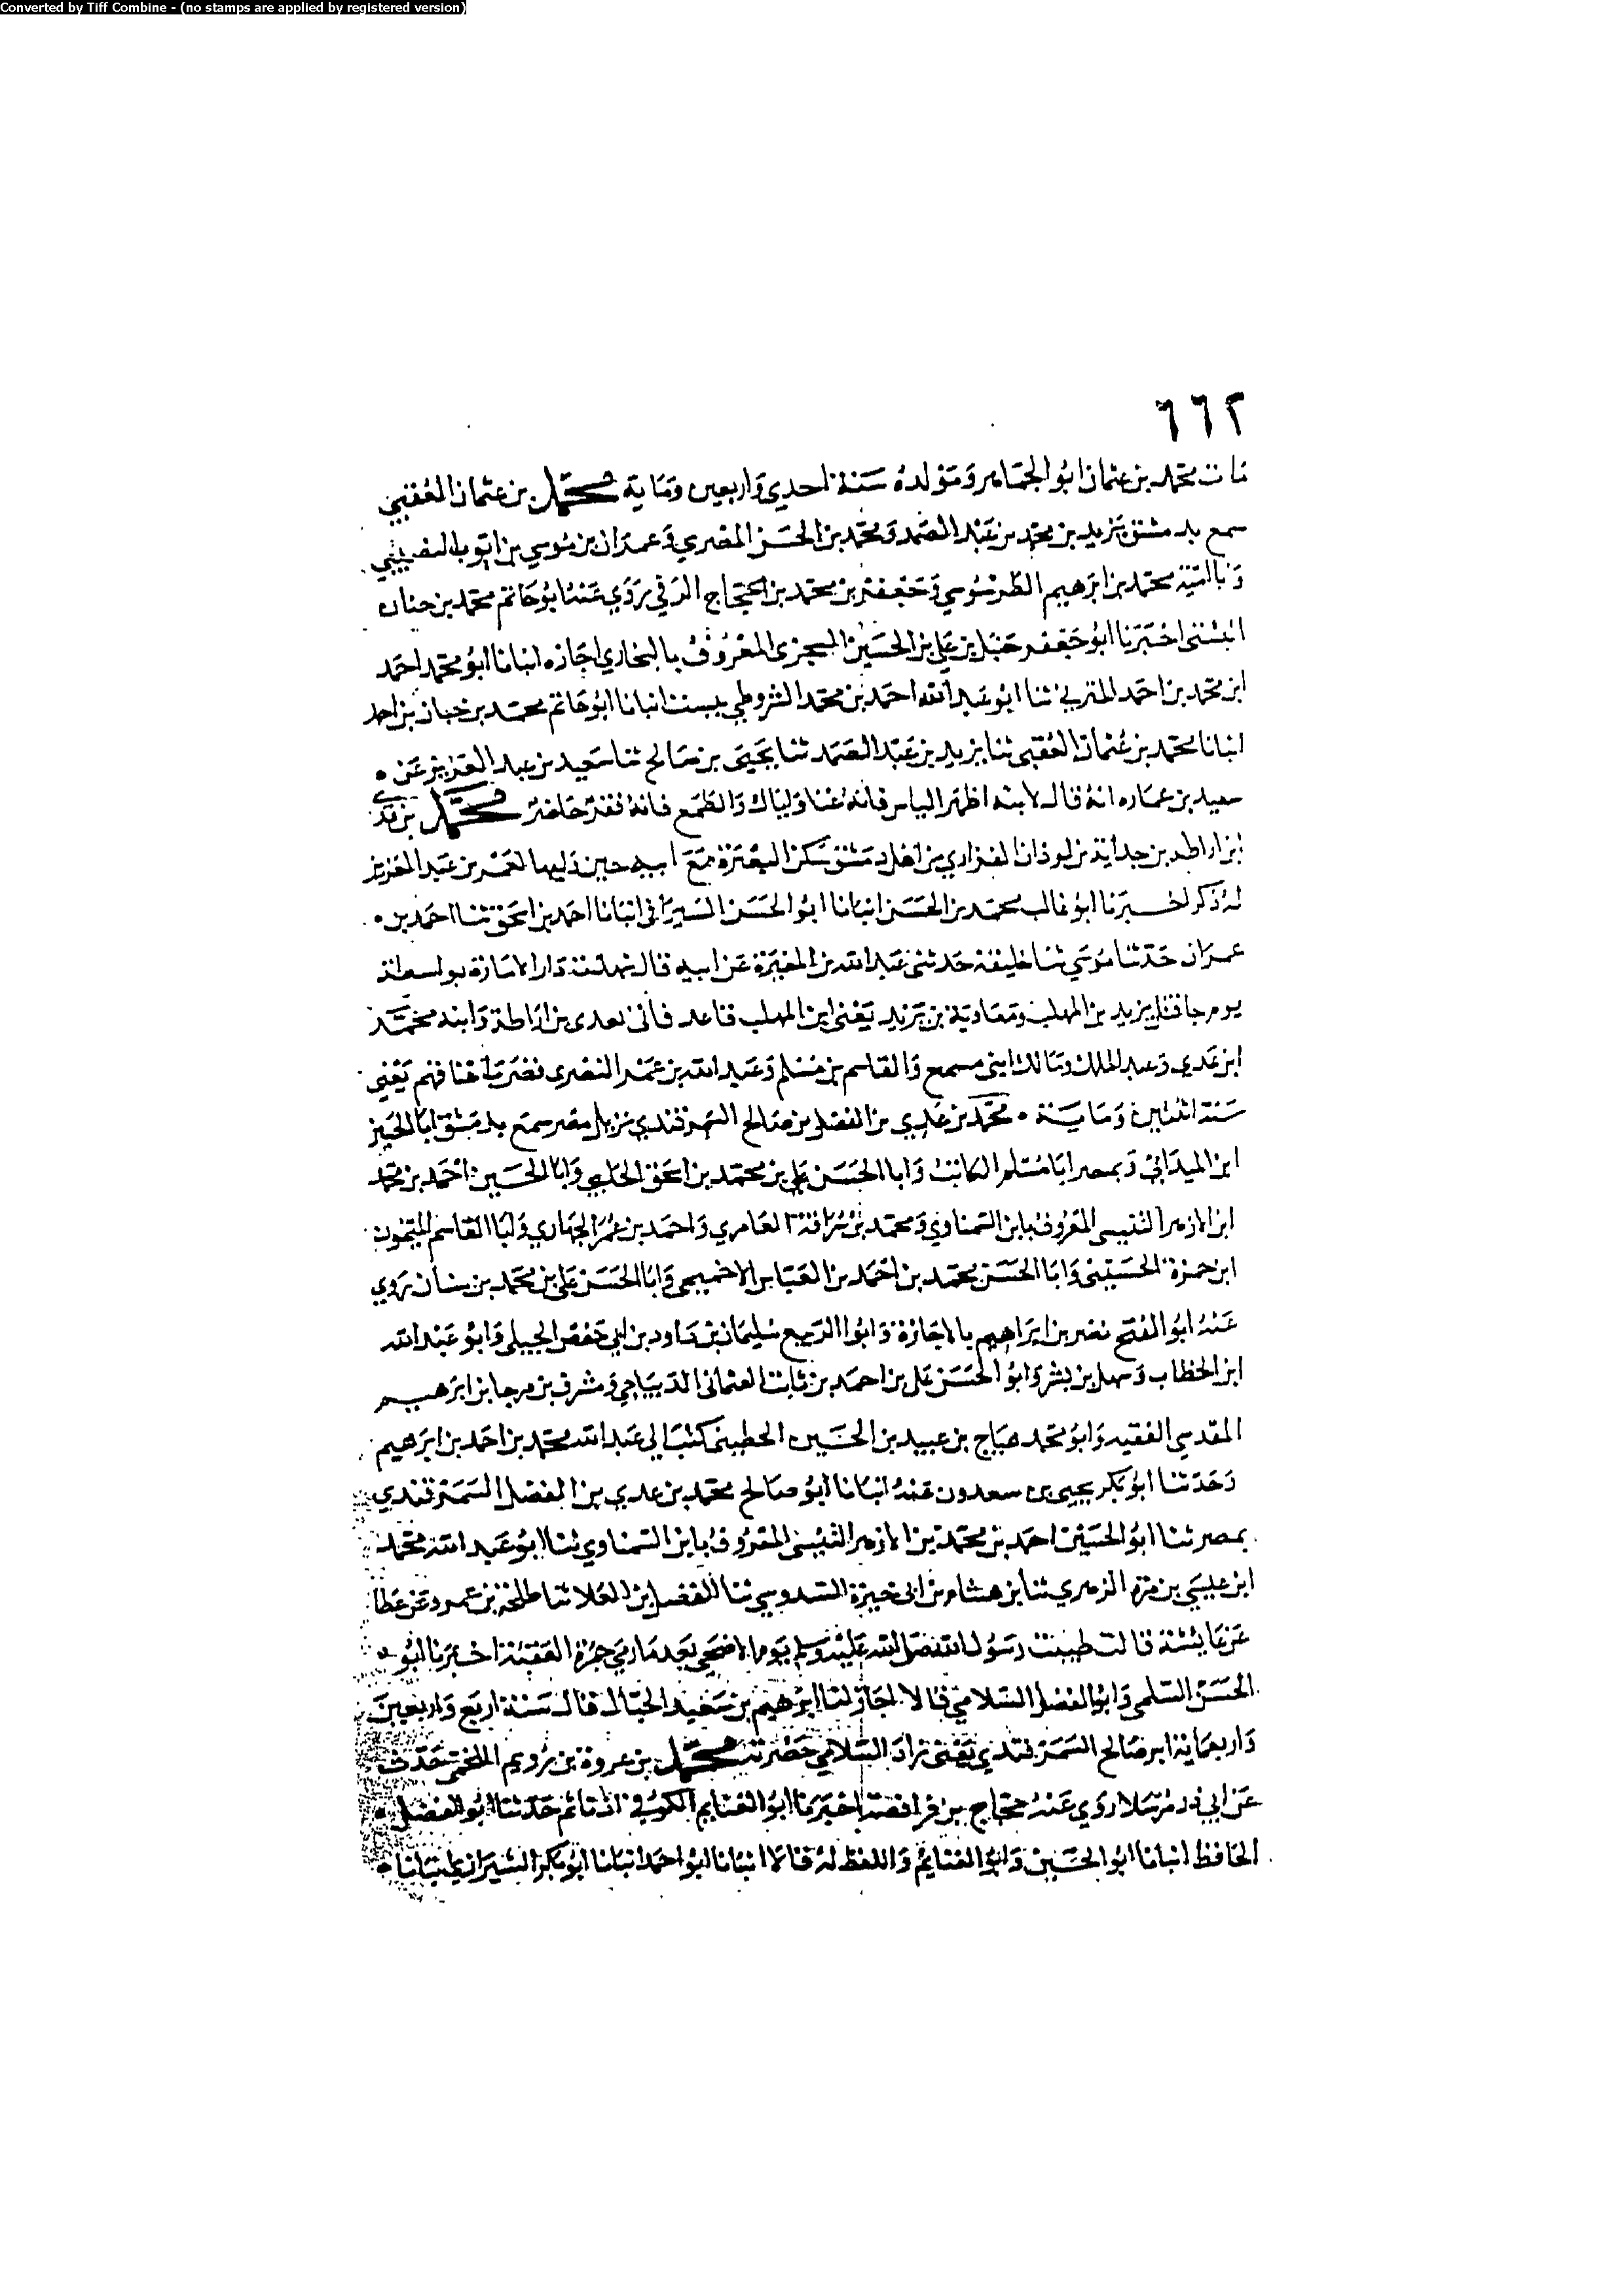 Converted by Tiff Combine - (no stamps are applied by registered version)
٦٦٢
مات محمد بن عثمان ابو الجماهر ومولده سنة احدي واربعين وماية محمد بن عثمان العقبي
سمع بدمشق يزيد بن محمد بن عبد الصمد ومحمد بن الحسن المصري وعمران بن موسي بن ايوب بالمصيصي
محمد بن ابرهيم الطرسوسي وجعفر بن محمد بن الحجاج الرقي روي عنه ابو حاتم محمد بن حبان
البستي اخبرنا ابو جعفر حنبل بن علي بن الحسين السجزي المعروف بالبخاري اجازه انبانا ابو محمد احمد
ابن محمد بن احمد ثنا ابو عبد الله احمد بن محمد الشروطي ببست انبانا ابو حاتم محمد بن حبان بن احمد
انبانا محمد بن عثمان العقبي ثنا يزيد بن عبد الصمد ثنا يحيي بن صالح ثنا سعيد بن عبد العزيز عن
سعيد بن عماره انه قال لابنه اظهر الياس فانه غنا واياك والطمع فانه فقر حاضر محمد بن عدي
ابن اراطه بن جداية بن لوذان الفزاري من اهل دمشق سكن البصرة مع ابيه حين وليها لعمر بن عبد العزيز
له ذكر اخبرنا ابو غالب محمد بن الحسن انبانا ابو الحسن السيرافي انبانا احمد بن اسحق ثنا احمد بن
عمران حدثنا موسي ثنا خليفة حدثني عبد الله بن المغيرة عن ابيه قال شهدت دار الامارة بواسط
يوم جا قتل يزيد بن المهلب ومعاوية بن يزيد يعني ابن المهلب قاعد فاتي بعدي بن اراطة وابنه محمد
ابن عدي وعبد الملك ومالك ابني مسمع والقاسم بن مسلم وعبد الله بن عمر النصري فضرب اعناقهم يعني
سنة اثنتين وماية محمد بن عدي بن الفضل بن صالح السمرقندي نزيل مصر سمع بدمشق ابا الخير
ابن الميداني وبمصر ابا مسلم الكاتب وابا الحسن علي بن محمد بن اسحق الحلبي وابا الحسين احمد بن محمد
ابن الازهر التنيسي المعروف بابن السمناوي ومحمد بن سراقة العامري واحمد بن عمر الجهازي وابا القاسم الميمون
ابن حمزة الحسيني وابا الحسن محمد بن احمد بن العباس الاخميمي وابا الحسن علي بن محمد بن سنان روي
عنه ابو الفتح نصر بن ابراهيم بالاجازة وابو الربيع سليمان بن داود بن ابي حفص الجبيلي وابو عبد الله
ابن الحطاب وسهل بن بشر وابو الحسن علي بن احمد بن ثابت العثماني الديباجي ومشرف بن مرجا بن ابرهيم
المقدسي الفقيه وابو محمد هياج بن عبيد بن الحسين الحطيني كتب الي عبد الله محمد بن احمد بن ابرهيم
وحدثنا ابو بكر يحيى بن سعدون عنه انبانا ابو صالح محمد بن عدي بن الفضل السمرقندي
بمصر ثنا ابو الحسين احمد بن محمد بن الازهر التنيسي المعروف بابن السمناوي ثنا ابو عبد الله محمد
ابن عيسي بن الزهري ثنا بن هشام بن ابي خيرة السدوسي ثنا الفضل بن العلا ثنا طلحة بن عمرو عن عطا
عن عايشة قالت طيبت رسول الله صلى الله عليه وسلم يوم الاضحى بعد ما رمي جمرة العقبة اخبرنا ابو
الحسن السلمي وابو الفضل السلامي قالا اجاز لنا ابرهيم بن سعيد الحبال قال سنة اربع واربعين
واربعماية ابو صالح السمرقندي يعني زاد السلامي حضرت محمد بن عروة بن رويم اللخمي حدث
عن ابي ذر مرسلا روي عنه حجاج بن فرافصة اخبرنا ابو الغنايم الكوفي حدثنا ابو الفضل
الحافظ انبانا ابو الحسين وابو الغنايم واللفظ له قالا انبانا ابو احمد انبانا ابو بكر الشيرازي